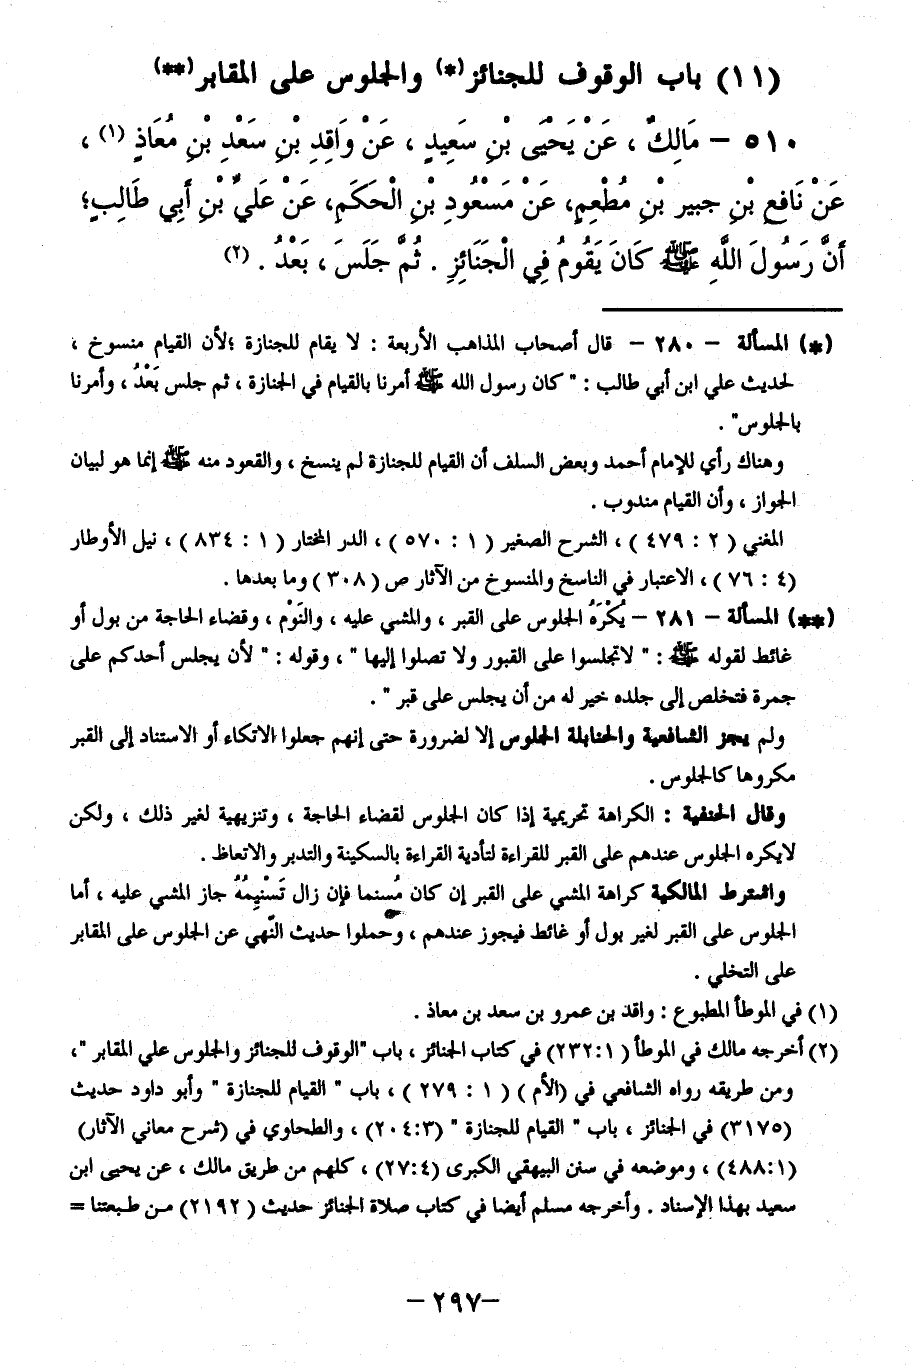 (١١) باب الوقوف للجنائز(*) والجلوس على المقابر(**)
٥١٠ – مَالِكٌ ، عَنْ يَحْيَى بْنِ سَعِيدٍ ، عَنْ وَاقِدِ بْنِ سَعْدِ بْنِ مُعَاذٍ (١) ،
عَنْ نَافِعِ بْنِ جبير بْنِ مُطْعِمٍ، عَنْ مَسْعُودِ بْنِ الْحَكَمِ، عَنْ عَلَيِّ بْنِ أَبِي طَالِبٍ؛
أَنَّ رَسُولَ اللَّهِ ﷺ كَانَ يَقُومُ فِي الْجَنَائِزِ . ثُمَّ جَلَسَ ، بَعْدُ . (٢)
(*) المسألة – ٢٨٠ – قال أصحاب المذاهب الأربعة : لا يقام للجنازة ؛لأن القيام منسوخ ،
لحديث علي ابن أبي طالب : " كان رسول الله ﷺ أمرنا بالقيام في الجنازة ، ثم جلس بَعْدُ ، وأمرنا
بالجلوس" .
وهناك رأي للإمام أحمد وبعض السلف أن القيام للجنازة لم ينسخ ، والقعود منه ﷺ إنما هو لبيان
الجواز ، وأن القيام مندوب .
المغني ( ٢ : ٤٧٩ ) ، الشرح الصغير ( ١ : ٥٧٠ ) ، الدر المختار ( ١ : ٨٣٤ ) ، نيل الأوطار
(٤ : ٧٦ ) ، الاعتبار في الناسخ والمنسوخ من الآثار ص ( ٣٠٨ ) وما بعدها .
(**) المسألة – ٢٨١ – يُكْرَهُ الجلوس على القبر ، والمشي عليه ، والنَوْم ، وقضاء الحاجة من بول أو
غائط لقوله ﷺ : " لاتجلسوا على القبور ولا تصلوا إليها " ، وقوله : " لأن يجلس أحدكم على
جمرة فتخلص إلى جلده خير له من أن يجلس على قبر " .
ولم يجز الشافعية والحنابلة الجلوس إلا لضرورة حتى إنهم جعلوا الاتكاء أو الاستناد إلى القبر
مكروها كالجلوس .
وقال الحنفية : الكراهة تحريمية إذا كان الجلوس لقضاء الحاجة ، وتنزيهية لغير ذلك ، ولكن
لايكره الجلوس عندهم على القبر للقراءة لتأدية القراءة بالسكينة والتدبر والاتعاظ .
واشترط المالكية كراهة المشي على القبر إن كان مُسنما فإن زال تَسْنِيمُهُ جاز المشي عليه ، أما
الجلوس على القبر لغير بول أو غائط فيجوز عندهم ، وحَملوا حديث النّهي عن الجلوس على المقابر
على التخلي .
(١) في الموطأ المطبوع : واقد بن عمرو بن سعد بن معاذ .
(٢) أخرجه مالك في الموطأ ( ٢٣٢:١) في كتاب الجنائز ، باب "الوقوف للجنائز والجلوس علي المقابر "،
ومن طريقه رواه الشافعي في (الأم ) ( ١ : ٢٧٩ ) ، باب " القيام للجنازة " وأبو داود حديث
(٣١٧٥) في الجنائز ، باب " القيام للجنازة " (٢٠٤:٣) ، والطحاوي في (شرح معاني الآثار)
(٤٨٨:١) ، وموضعه في سنن البيهقي الكبرى (٢٧:٤) ، كلهم من طريق مالك ، عن يحيى ابن
سعيد بهذا الإسناد . وأخرجه مسلم أيضا في كتاب صلاة الجنائز حديث ( ٢١٩٢) من طبعتنا =
–٢٩٧–